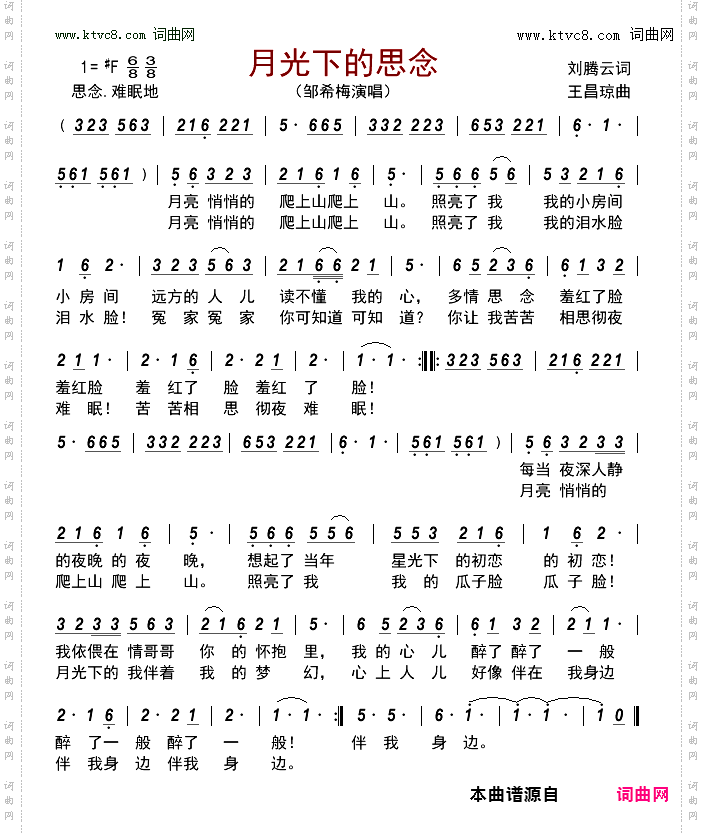 www.ktvc8.com 词曲网
www.ktvc8.com 词曲网
月光下的思念
1=♯F 6/8 3/8
刘腾云词
思念.难眠地
(邹希梅演唱)
王昌琼曲
( 323 563 | 216 221 | 5· 665 | 332 223 | 653 221 | 6· 1· |
561 561 ) | 5 6 3 2 3 | 2 1 6 1 6 | 5· | 5 6 6 5 6 | 5 3 2 1 6 |
月亮 悄悄的 爬上山爬上 山。 照亮了 我 我的小房间
月亮 悄悄的 爬上山爬上 山。 照亮了 我 我的泪水脸
1 6 2· | 3 2 3 5 6 3 | 2 1 6 6 2 1 | 5· | 6 5 2 3 6 | 6 1 3 2 |
小 房 间 远方的 人 儿 读不懂 我的 心, 多情 思 念 羞红了脸
泪 水 脸! 冤 家 冤 家 你可知道 可知 道? 你让 我苦苦 相思彻夜
2 1 1· | 2· 1 6 | 2· 2 1 | 2· | 1· 1· :‖: 323 563 | 216 221 |
羞红脸 羞 红了 脸 羞红 了 脸!
难 眠! 苦 苦相 思 彻夜 难 眠!
5· 665 | 332 223 | 653 221 | 6· 1· | 561 561 ) | 5 6 3 2 3 3 |
每当 夜深人静
月亮 悄悄的
2 1 6 1 6 | 5· | 5 6 6 5 5 6 | 5 5 3 2 1 6 | 1 6 2· |
的夜晚 的 夜 晚, 想起了 当年 星光下 的初恋 的 初 恋!
爬上山 爬 上 山。 照亮了 我 我 的 瓜子脸 瓜 子 脸!
3 2 3 3 5 6 3 | 2 1 6 2 1 | 5· | 6 5 2 3 6 | 6 1 3 2 | 2 1 1· |
我依偎在 情哥哥 你 的 怀抱 里, 我 的 心 儿 醉了 醉了 一 般
月光下的 我伴着 我 的 梦 幻, 心 上 人 儿 好像 伴在 我身边
2· 1 6 | 2· 2 1 | 2· | 1· 1· :‖ 5· 5· | 6· 1· | 1· 1· | 1 0 ‖
醉 了一 般 醉了 一 般! 伴 我 身 边。
伴 我身 边 伴我 身 边。
本曲谱源自 词曲网